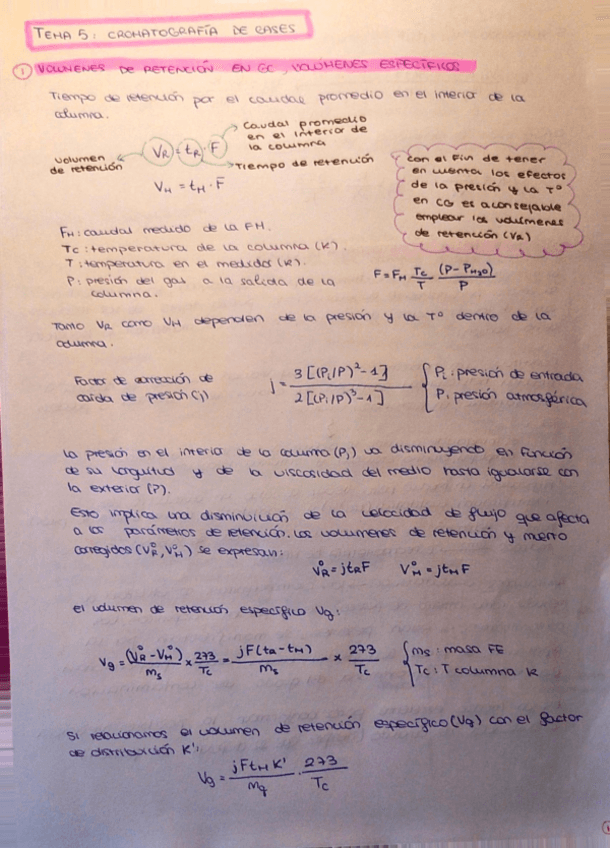 TEMA 5: CROMATOGRAFÍA DE GASES
1 VOLÚMENES DE RETENCIÓN EN GC, VOLÚMENES ESPECÍFICOS
Tiempo de retención por el caudal promedio en el interior de la
columna.
Caudal promedio
en el interior de
la columna
volumen
de retención
V_R = t_R · F
Tiempo de retención
V_M = t_M · F̄
con el fin de tener
en cuenta los efectos
de la presión y la Tº
en CG es aconsejable
emplear los volúmenes
de retención (V_R)
F_M: caudal medido de la FM.
Tc: temperatura de la columna (K).
T: temperatura en el medidor (K).
P: presión del gas a la salida de la
columna.
F = F_M Tc/T (P - P_H2O)/P
Tanto V_R como V_M dependen de la presión y la Tº dentro de la
columna.
Factor de corrección de
caída de presión (j)
j = 3[(Pi/P)² - 1] / 2[(Pi/P)³ - 1]
Pi: presión de entrada
P: presión atmosférica
La presión en el interior de la columna (Pi) va disminuyendo en función
de su longitud y de la viscosidad del medio hasta igualarse con
la exterior (P).
Esto implica una disminución de la velocidad de flujo que afecta
a los parámetros de retención. Los volúmenes de retención y muerto
corregidos (V°_R, V°_M) se expresan:
V°_R = j t_R F V°_M = j t_M F
el volumen de retención específico Vg:
Vg = (V°_R - V°_M)/m_s x 273/Tc = jF(t_R - t_M)/m_s x 273/Tc
m_s: masa FE
Tc: T columna K
Si relacionamos el volumen de retención específico (Vg) con el factor
de distribución K':
Vg = j F t_M K'/M_q · 273/Tc
1